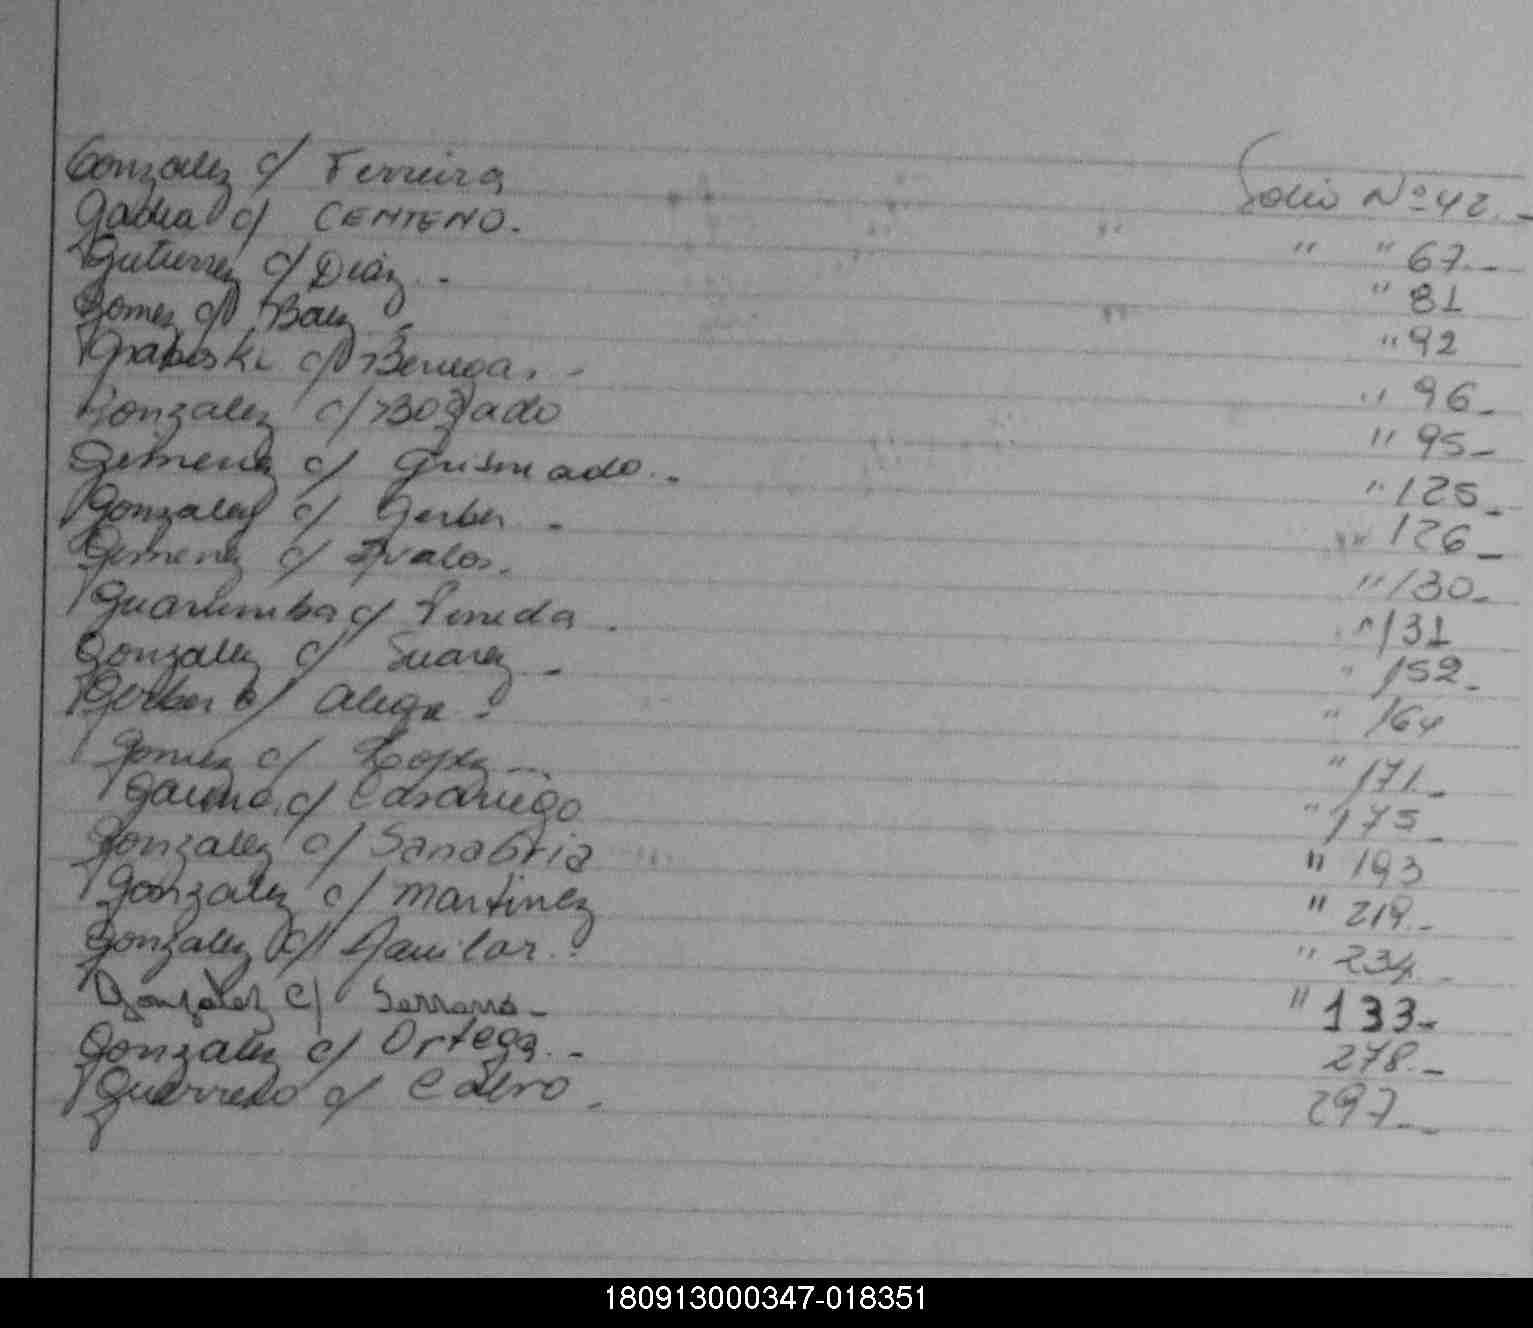 Gonzalez c/ Ferreira Folio Nº 42.-
c/ CENTENO. " " 67.-
Gutierrez c/ Diaz.- " 81
Gomez c/ Baez " 92
Graboski c/ Benega.- " 96-
Gonzalez c/ Bogado " 95-
Gimenez c/ Grismado.- " 125-
Gonzalez c/ Gerber - " 126-
Gimenez c/ Avalos. " 130-
c/ Pineda. " 131
Gonzalez c/ Suarez - " 152-
Gerber c/ Alega - " 164
Gomez c/ Lopez.- " 171.-
c/ Casariego " 175-
Gonzalez c/ Sanabria " 193
Gonzalez c/ Martinez " 219.-
Gonzalez c/ Aguilar. " 234-
González c/ Serrano- " 133-
Gonzalez c/ Ortega.- 278.-
Guerrero c/ 297.-
180913000347-018351